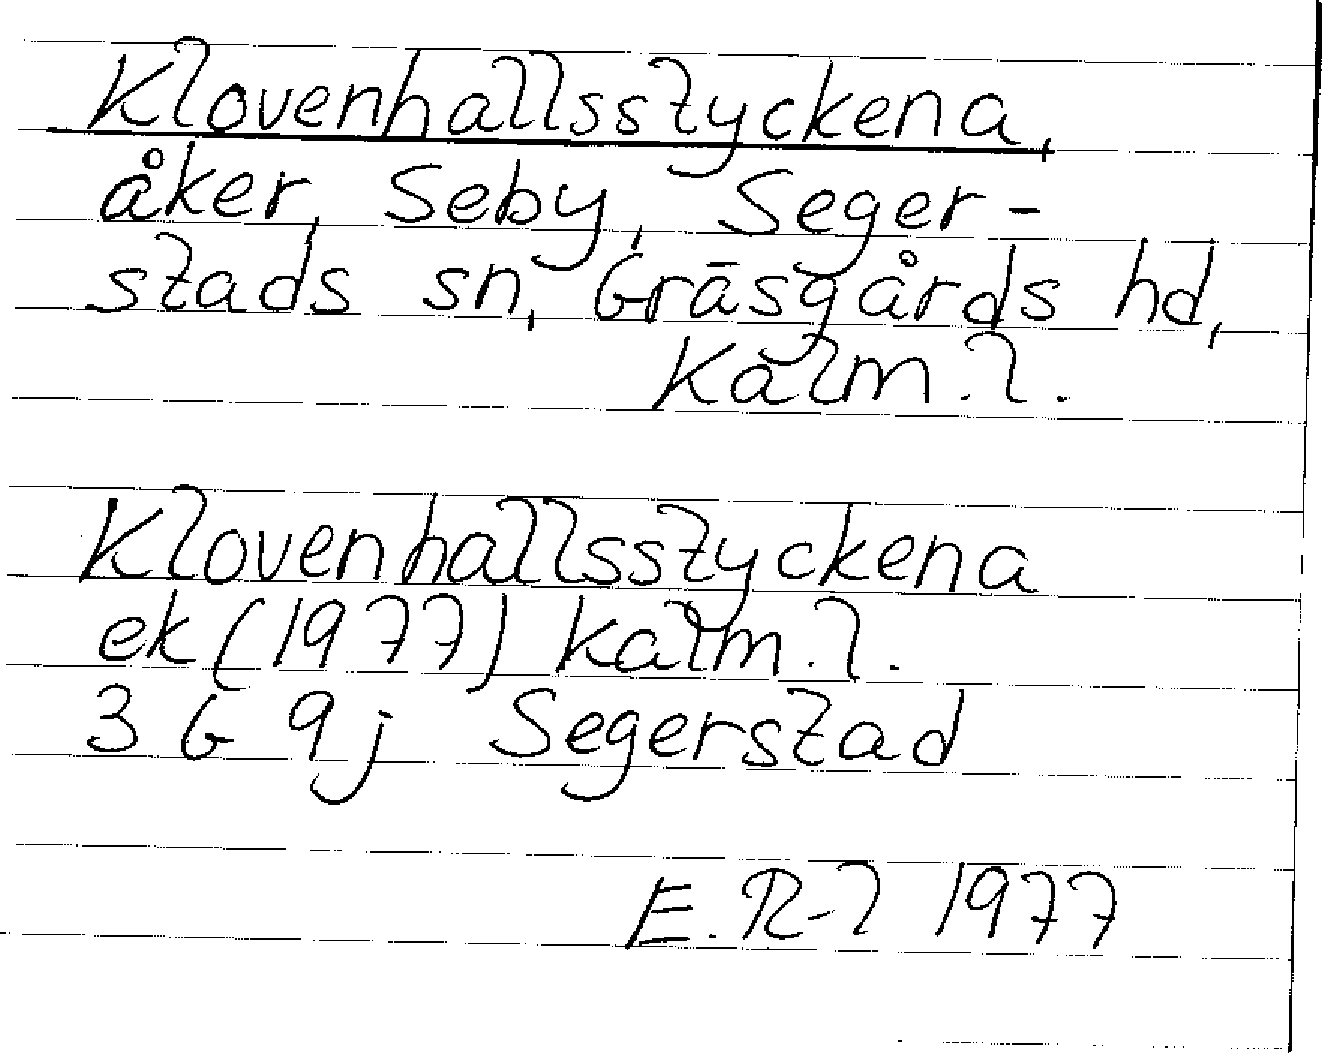 Klovenhallsstyckena,
åker, Seby, Seger-
stads sn, Gräsgårds hd,
Kalm.l.
Klovenhallsstyckena
ek (1977) Kalm.l.
3 G 9j Segerstad
E. R-l 1977